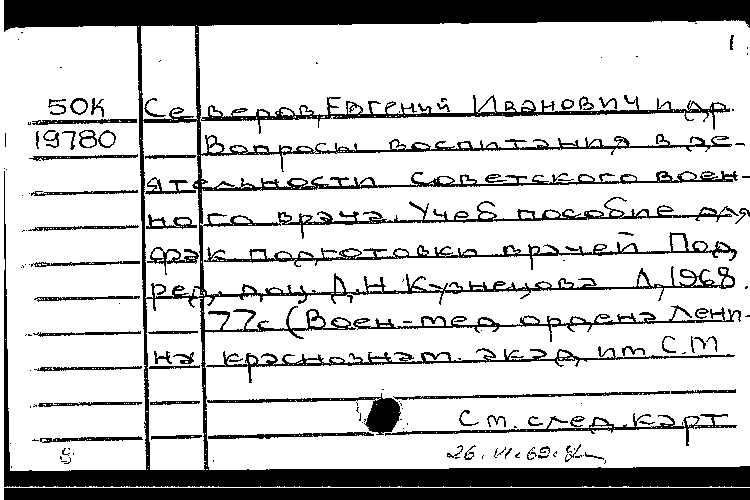 1
50К Северов, Евгений Иванович и др.
19780 Вопросы воспитания в де-
ятельности советского воен-
ного врача. Учеб пособие для
фак подготовки врачей Под
ред. доц. Д.Н Кузнецова Л, 1968.
77с (Воен-мед ордена Лени-
на краснознам. акад им С.М
См. след. карт
26.VI.69.